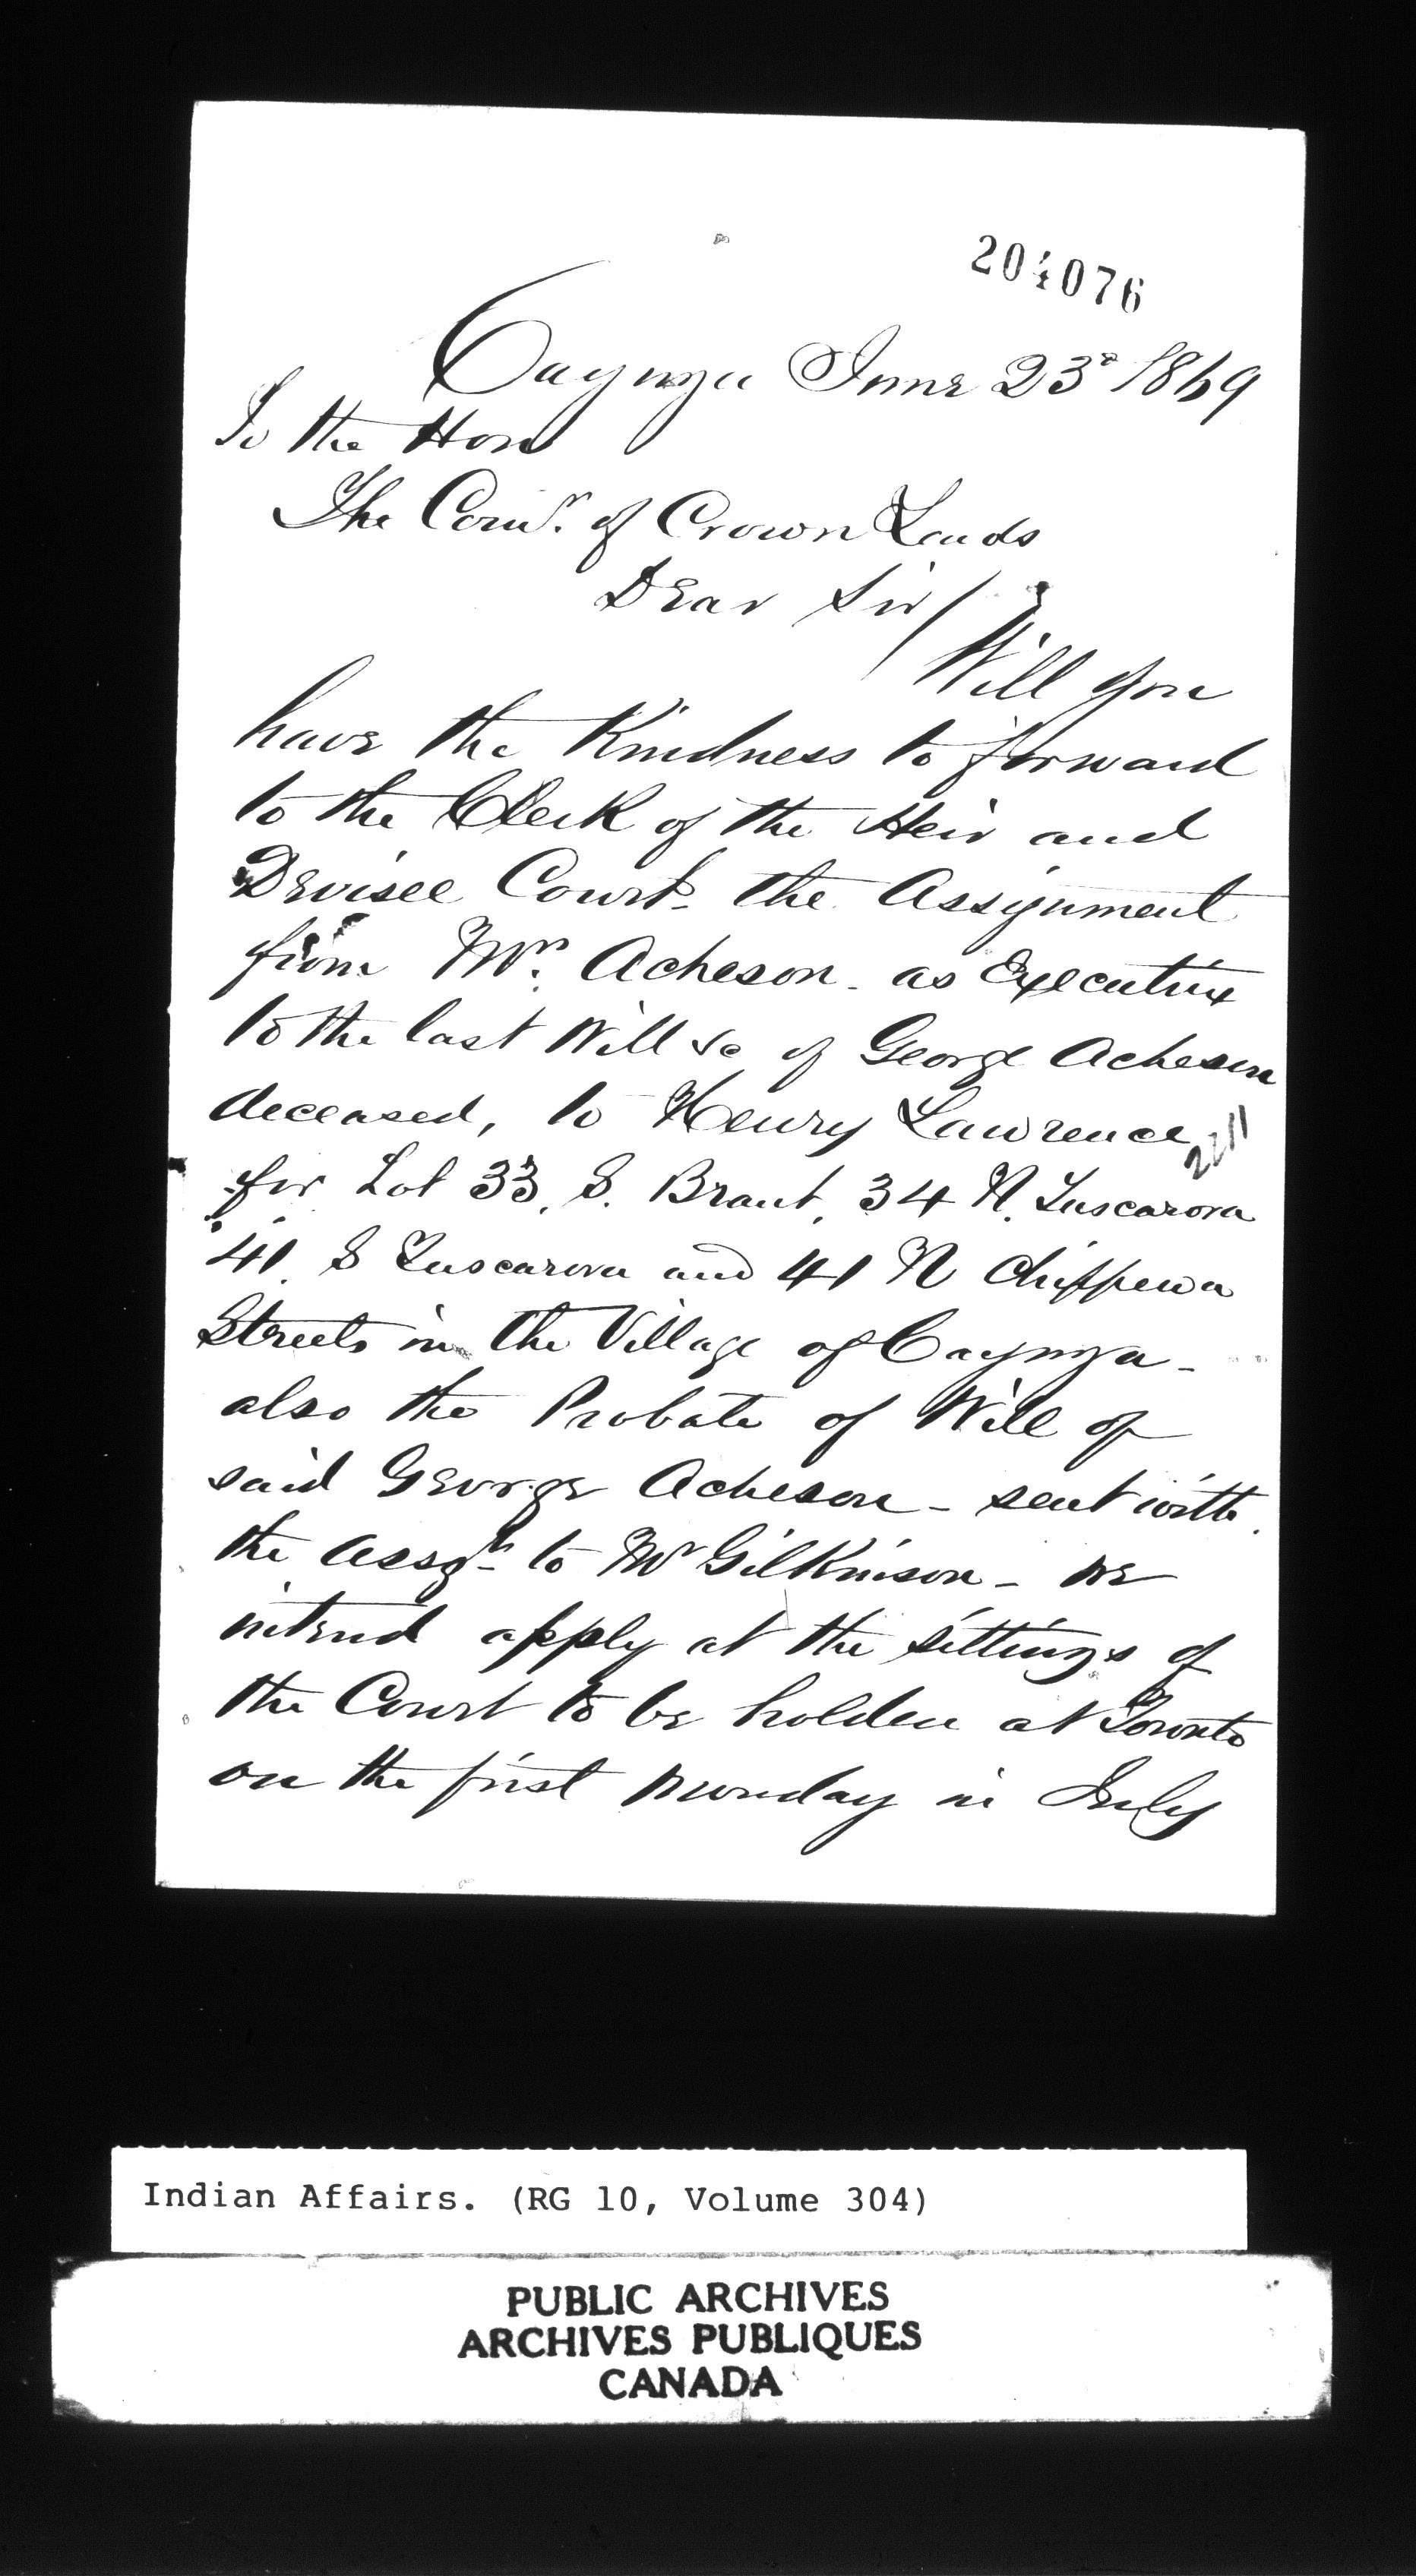 204076
Cayuga June 23d 1869
To the Hon
The Comr. of Crown Lands
Dear Sir/
Will you
have the Kindness to forward
to the Clerk of the Heir and
Devisee Court - the Assignment
from Mrs. Acheson - as Executrix
to the last Will &c of George Acheson
deceased, to Henry Lawrence
2211
for Lot 33, S. Brant, 34 N. Tuscarora
41 S Tuscarora and 41 N Chippewa
Streets in the Village of Cayuga -
also the Probate of Will of
said George Acheson - sent with
the assgt to Mr Gilkinson - we
intend apply at the sittings of
the Court to be holden at Toronto
on the first Monday in July
Indian Affairs. (RG 10, Volume 304)
PUBLIC ARCHIVES
ARCHIVES PUBLIQUES
CANADA